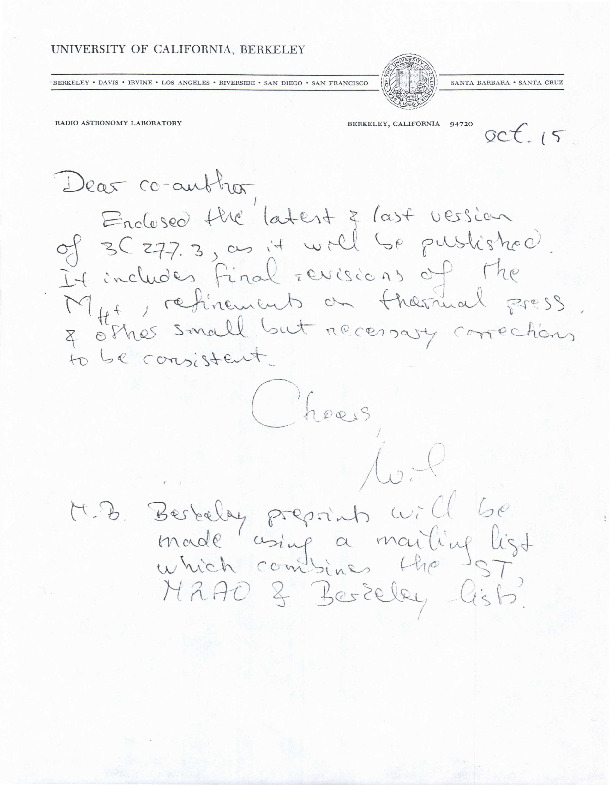 UNIVERSITY OF CALIFORNIA, BERKELEY
BERKELEY • DAVIS • IRVINE • LOS ANGELES • RIVERSIDE • SAN DIEGO • SAN FRANCISCO
SANTA BARBARA • SANTA CRUZ
RADIO ASTRONOMY LABORATORY
BERKELEY, CALIFORNIA 94720
Oct. 15
Dear co-author,
Enclosed the latest & last version
of 3C 277.3, as it will be published.
It includes final revisions of the
refinements on thermal press.
& other small but necessary corrections
to be consistent.
Cheers,
Wil
N.B. Berkeley preprints will be
made using a mailing list
which combines the ST,
NRAO & Berkeley lists.